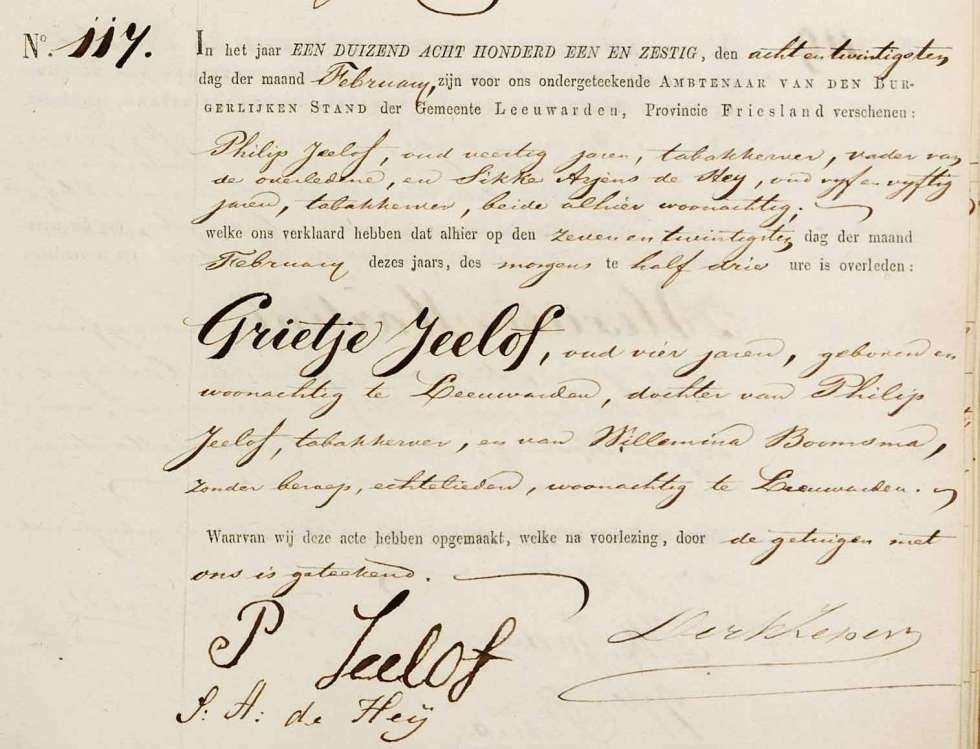 No. 117. In het jaar EEN DUIZEND ACHT HONDERD EEN EN ZESTIG, den acht en twintigsten
dag der maand February, zijn voor ons ondergeteekende AMBTENAAR VAN DEN BUR-
GERLIJKEN STAND der Gemeente Leeuwarden, Provincie Friesland verschenen:
Philip Jeelof, oud veertig jaren, tabakkerver, vader van
de overledene, en Sikke Arjens de Heij, oud vyf en vyftig
jaren, tabakkerver, beide alhier woonachtig;
welke ons verklaard hebben dat alhier op den zeven en twintigsten dag der maand
February dezes jaars, des morgens te half drie ure is overleden:
Grietje Jeelof, oud vier jaren, geboren en
woonachtig te Leeuwarden, dochter van Philip
Jeelof, tabakkerver, en van Willemina Boomsma,
zonder beroep, echtelieden, woonachtig te Leeuwarden.
Waarvan wij deze acte hebben opgemaakt, welke na voorlezing, door de getuigen met
ons is geteekend.
P Jeelof
S: A: de Heÿ